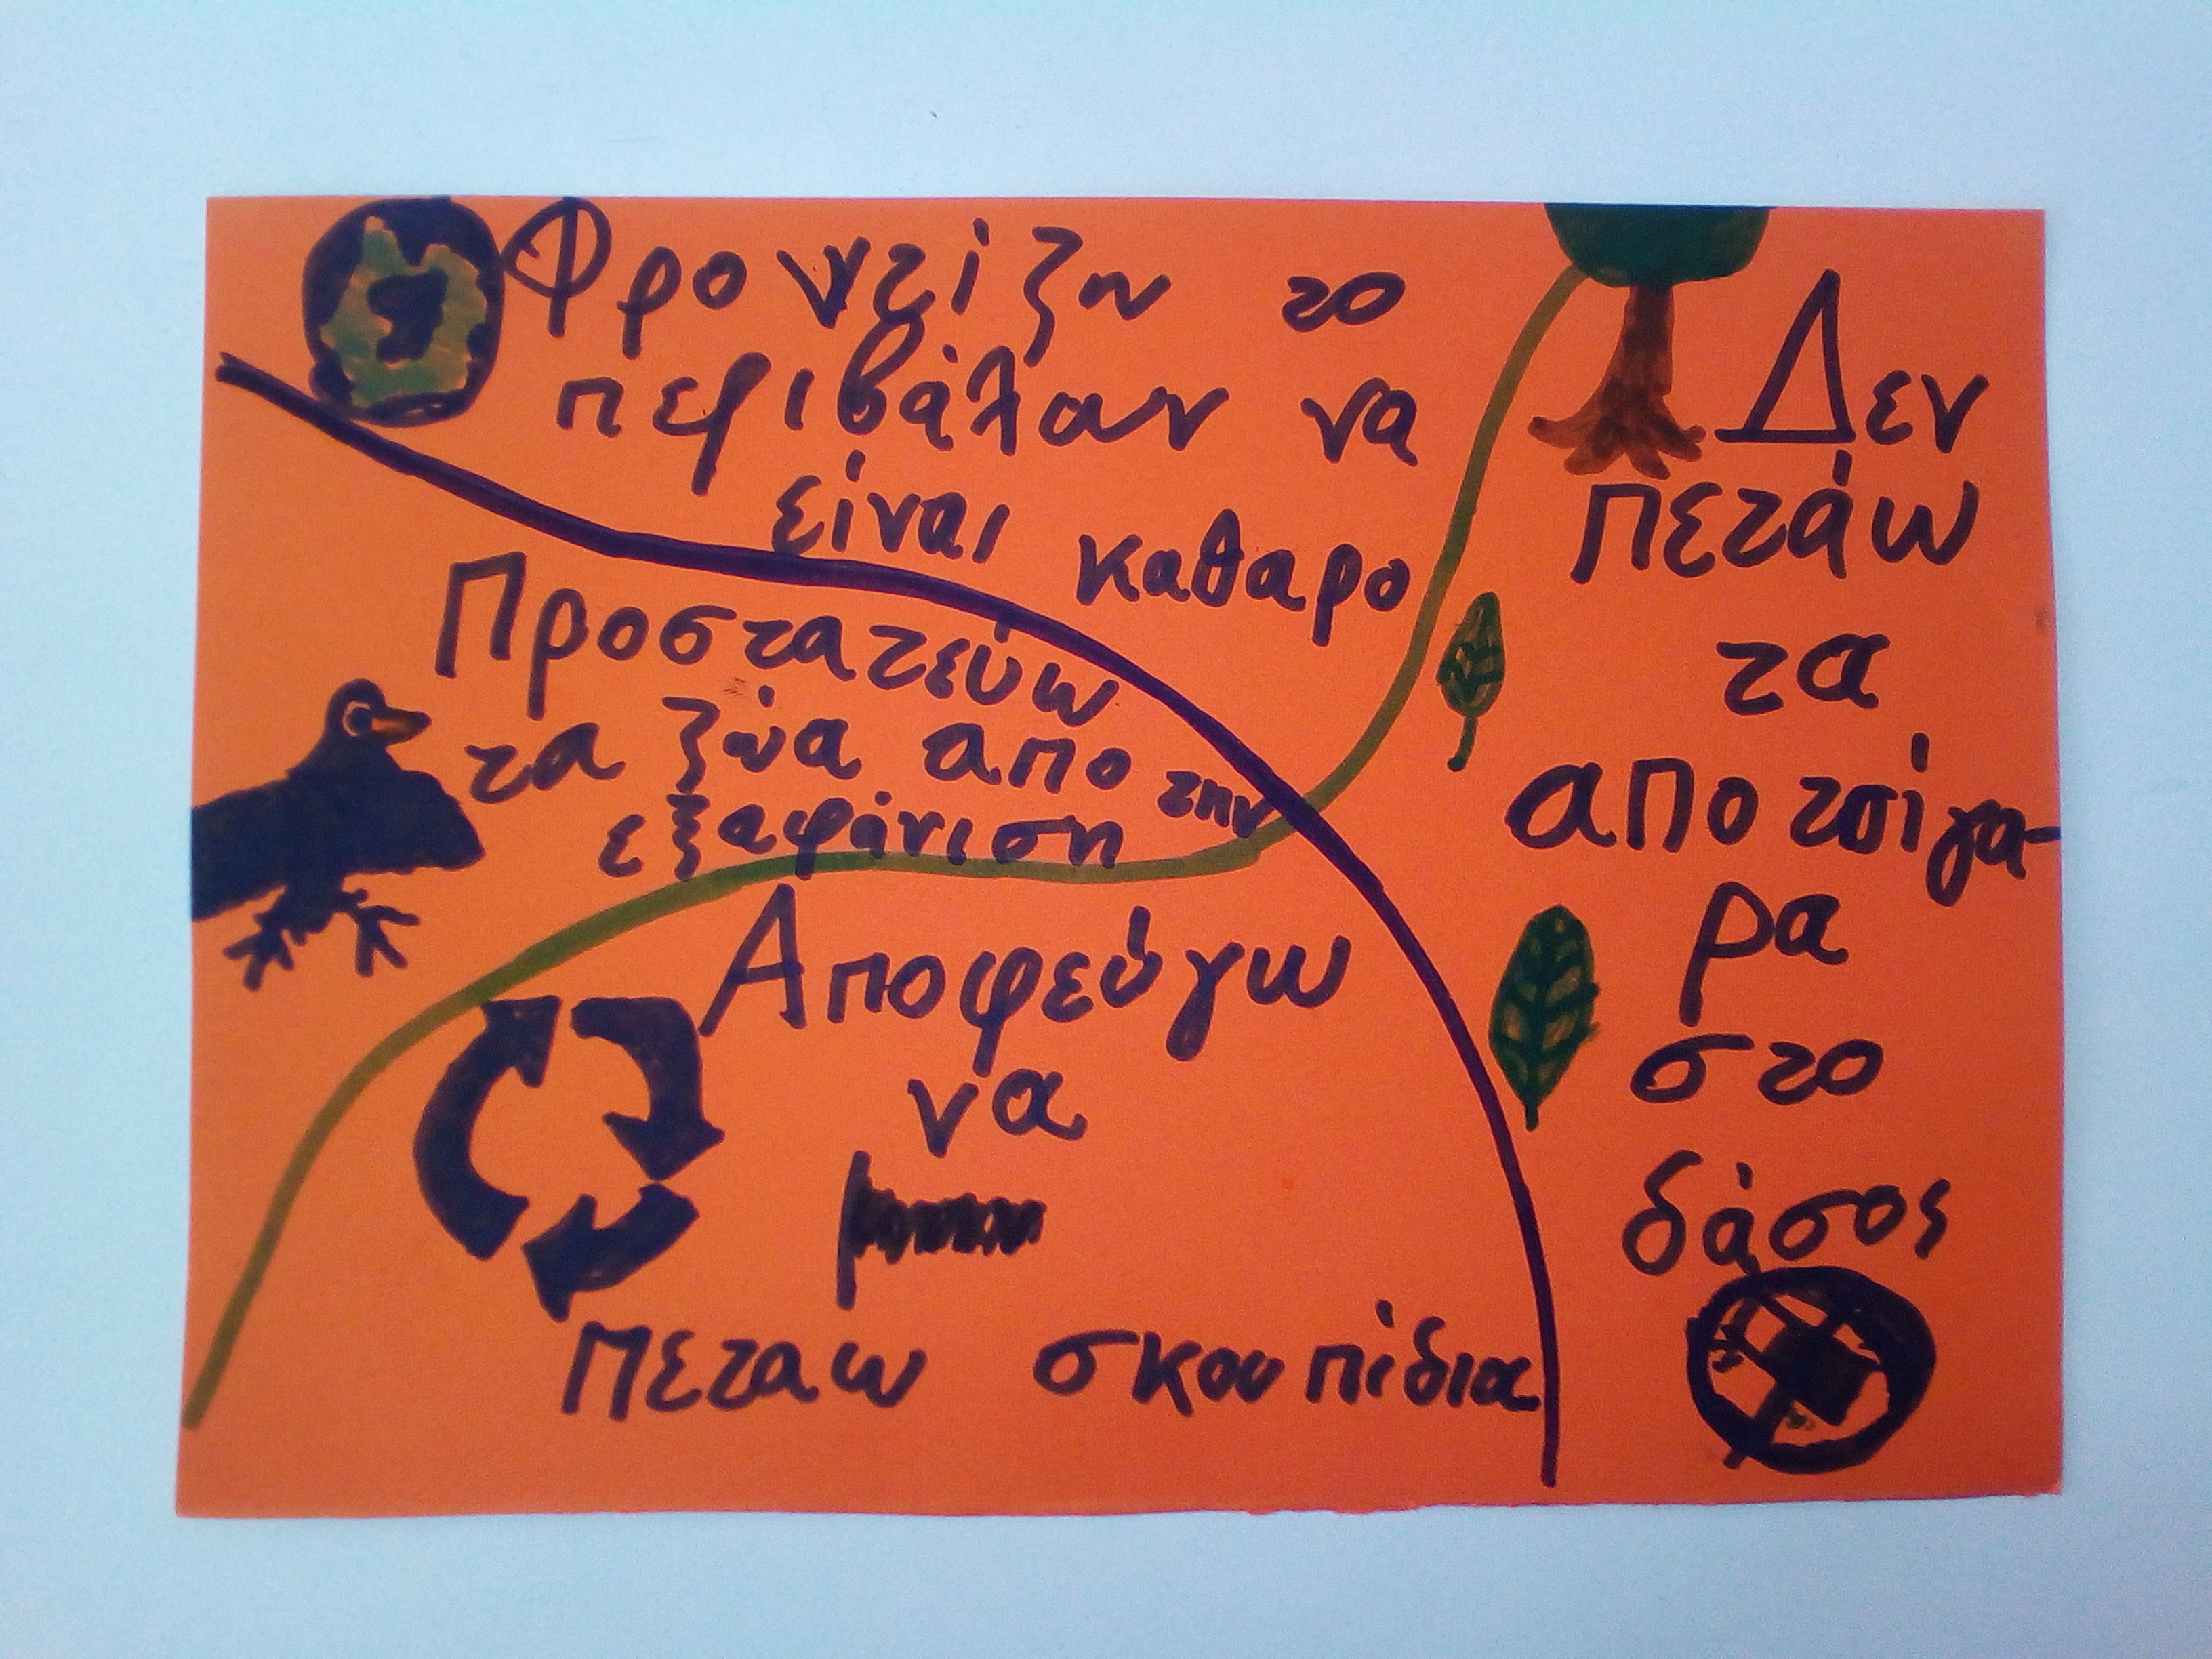 Φροντίζω το
περιβάλων να
είναι καθαρο
Προστατεύω
τα ζώα απο την
εξαφάνιση
Αποφεύγω
να
πεταω σκουπίδια
Δεν
πετάω
τα
αποτσίγα-
ρα
στο
δάσος